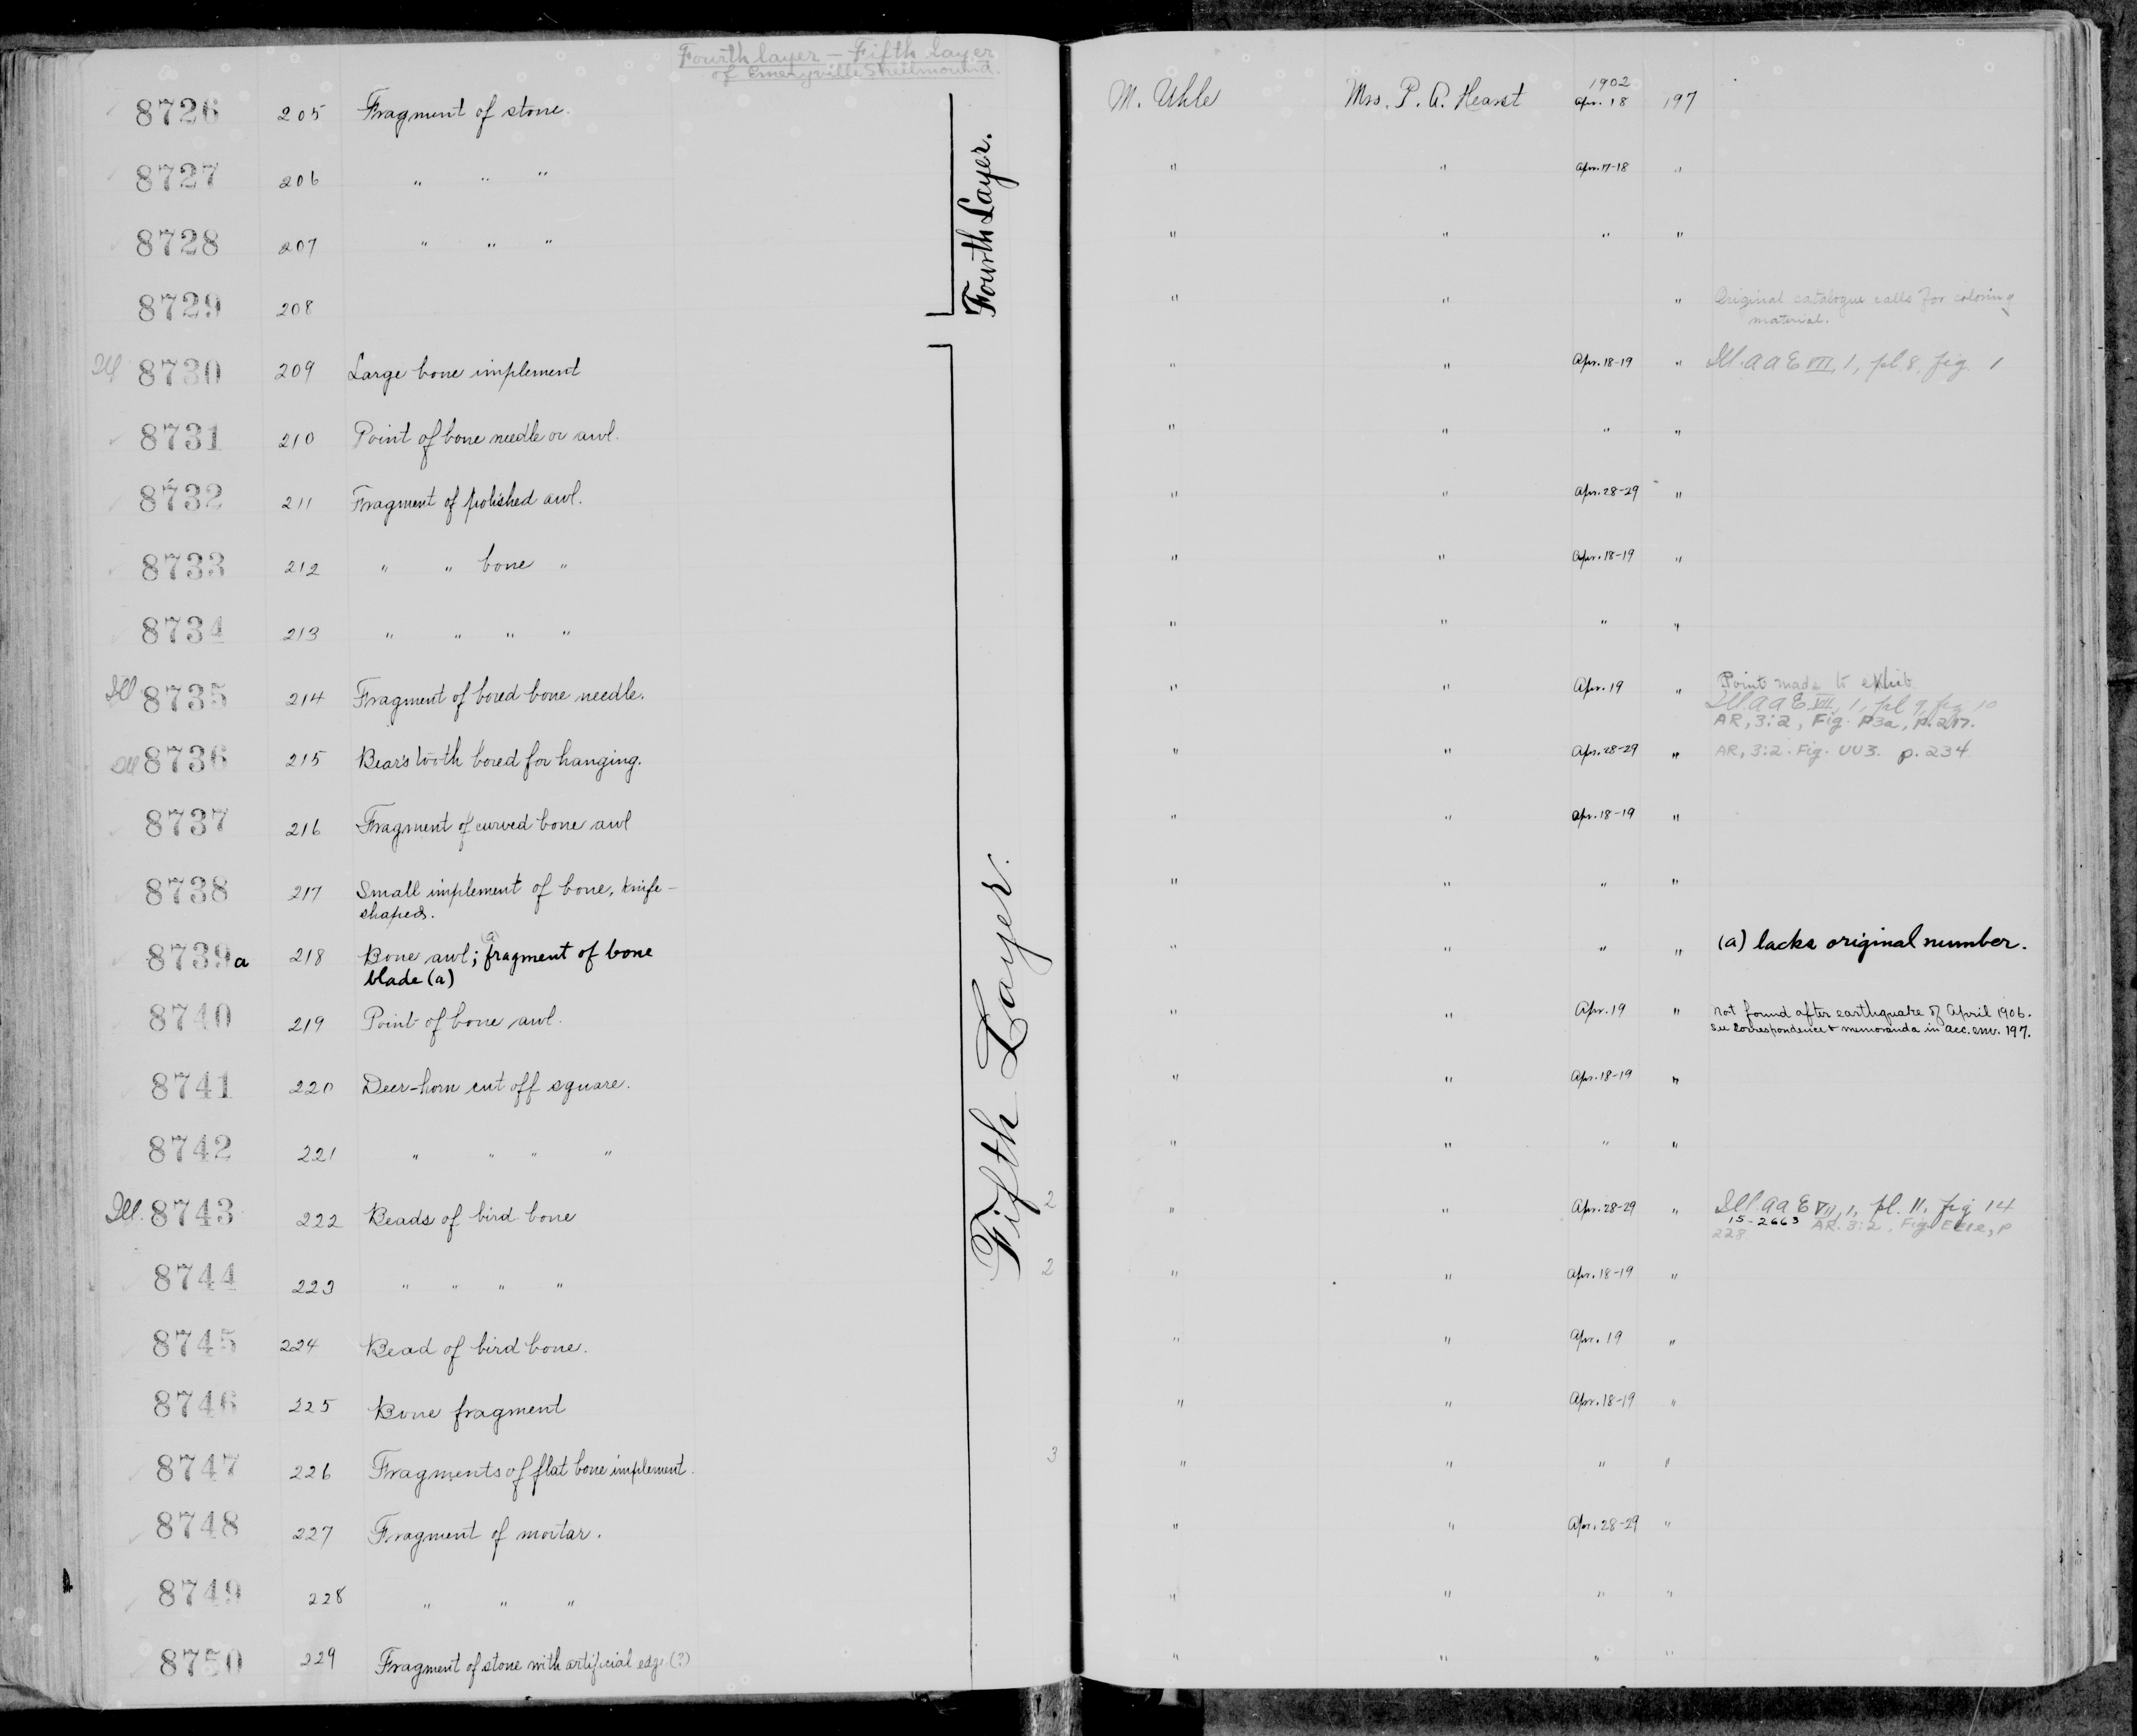 Fourth layer - Fifth layer
of Emeryville Shellmound.
8726 205 Fragment of stone. M. Uhle Mrs. P. A. Hearst 1902 Apr. 18 197
8727 206 " " " " " Apr. 17-18 "
8728 207 " " " " " " "
8729 208 " " " Original catalogue calls for coloring
material.
Fourth Layer.
Ill 8730 209 Large bone implement " " Apr. 18-19 " Ill. A A E VII, 1, pl. 8, fig. 1
8731 210 Point of bone needle or awl. " " " "
8732 211 Fragment of polished awl. " " Apr. 28-29 "
8733 212 " " bone " " " Apr. 18-19 "
8734 213 " " " " " " " "
Ill 8735 214 Fragment of bored bone needle. " " Apr. 19 " Point made to exhib.
Ill. A A E VII, 1, pl 9, fig 10
AR, 3:2, Fig. P3a, p. 217.
Ill 8736 215 Bear's tooth bored for hanging. " " Apr. 28-29 " AR, 3:2. Fig. UU3. p. 234
8737 216 Fragment of curved bone awl " " Apr. 18-19 "
8738 217 Small implement of bone, knife-
shaped. " " " "
8739a 218 Bone awl; (a) fragment of bone
blade (a) " " " " (a) lacks original number.
8740 219 Point of bone awl. " " Apr. 19 " Not found after earthquake of April 1906.
See correspondence & memoranda in acc. env. 197.
8741 220 Deer-horn cut off square. " " Apr. 18-19 "
8742 221 " " " " " " " "
Ill. 8743 222 Beads of bird bone 2 " " Apr. 28-29 " Ill. A A E VII, 1, pl. 11, fig 14
15-2663 AR. 3:2, Fig. p
228
8744 223 " " " " 2 " " Apr. 18-19 "
8745 224 Bead of bird bone. " " Apr. 19 "
8746 225 Bone fragment " " Apr. 18-19 "
8747 226 Fragments of flat bone implement. 3 " " " "
8748 227 Fragment of mortar. " " Apr. 28-29 "
8749 228 " " " " " " "
8750 229 Fragment of stone with artificial edge (?) " " " "
Fifth Layer.